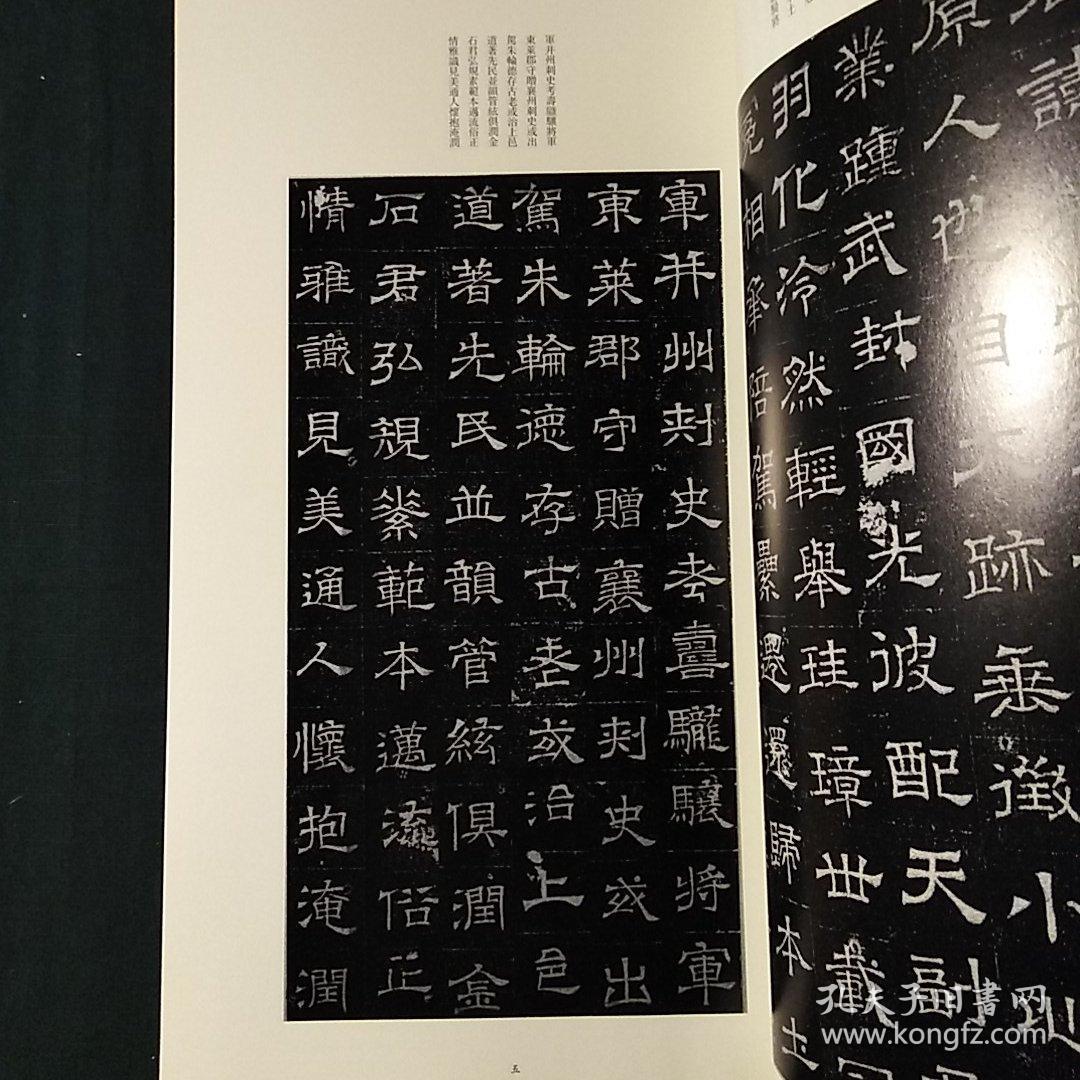 軍并州刺史考壽驪驤將軍
東萊郡守贈襄州刺史或出
駕朱輪德存古老或治上邑
道著先民並韻管絃俱潤金
石君弘規素範本邁流俗正
情雅識見美通人懷抱淹潤
軍并州刺史考壽驪驤將軍
東萊郡守贈襄州刺史或出
駕朱輪德存古老或治上邑
道著先民並韻管絃俱潤金
石君弘規素範本邁流俗正
情雅識見美通人懷抱淹潤
五
原人也自大
跡垂徵小
業踵武封國光彼配天副
羽化泠然輕舉珪璋世載
相華陪駕纍還還歸本土
孔夫子旧書网
www.kongfz.com